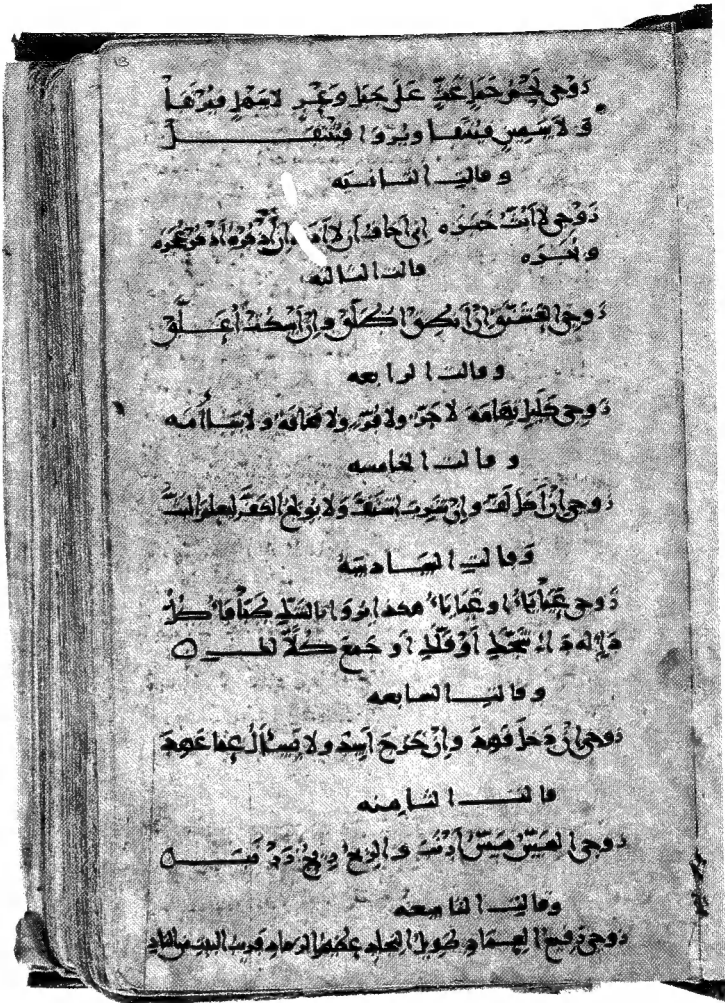 زوجي لحم جمل غث على جبل وعر لا سهل فيرتقا
ولا سمين فينتقا ويروا فينتقل
وقالت الثانيه
زوجي لا أبث خبره إني أخاف أن لا أذره إن أذكره أذكر عجره
وبجره
قالت الثالثه
زوجي العشنق إن أنطق أطلق وإن أسكت أعلق
وقالت الرابعه
زوجي كليل تهامه لا حر ولا قر ولا مخافه ولا سأامه
وقالت الخامسه
زوجي إن أكل لف وإن شرب اشتف ولا يولج الكف ليعلم البث
وقالت السادسه
زوجي عياياء او غياياء هكذا يروا بالشك طباقاء كل
داء له داء شجك أو فلك أو جمع كلا لك
وقالت السابعه
زوجي إن دخل فهد وإن خرج أسد ولا يسأل عما عهد
قالت الثامنه
زوجي المس مس أرنب والريح ريح زرنب
وقالت التاسعه
زوجي رفيع العماد طويل النجاد عظيم الرماد قريب البيت من الناد